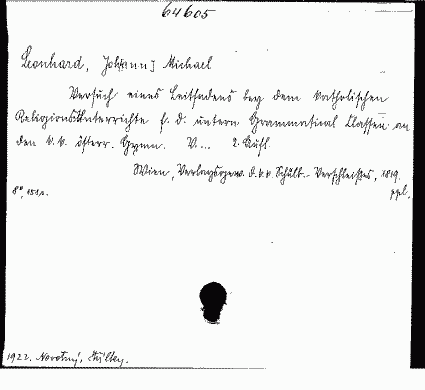 64605
Leonhard, Joh[ann] Michael
Versuch eines Leitfadens bey dem katholischen
Religions-Unterrichte f. d. untern Grammatical Classen an
den k. k. österr. Gymn. V... 2. Aufl.
Wien, Verlagsgew. d. k. k. Schulb.-Verschleißes, 1819.
8°, 151 S. ppl.
1922. Novotny,